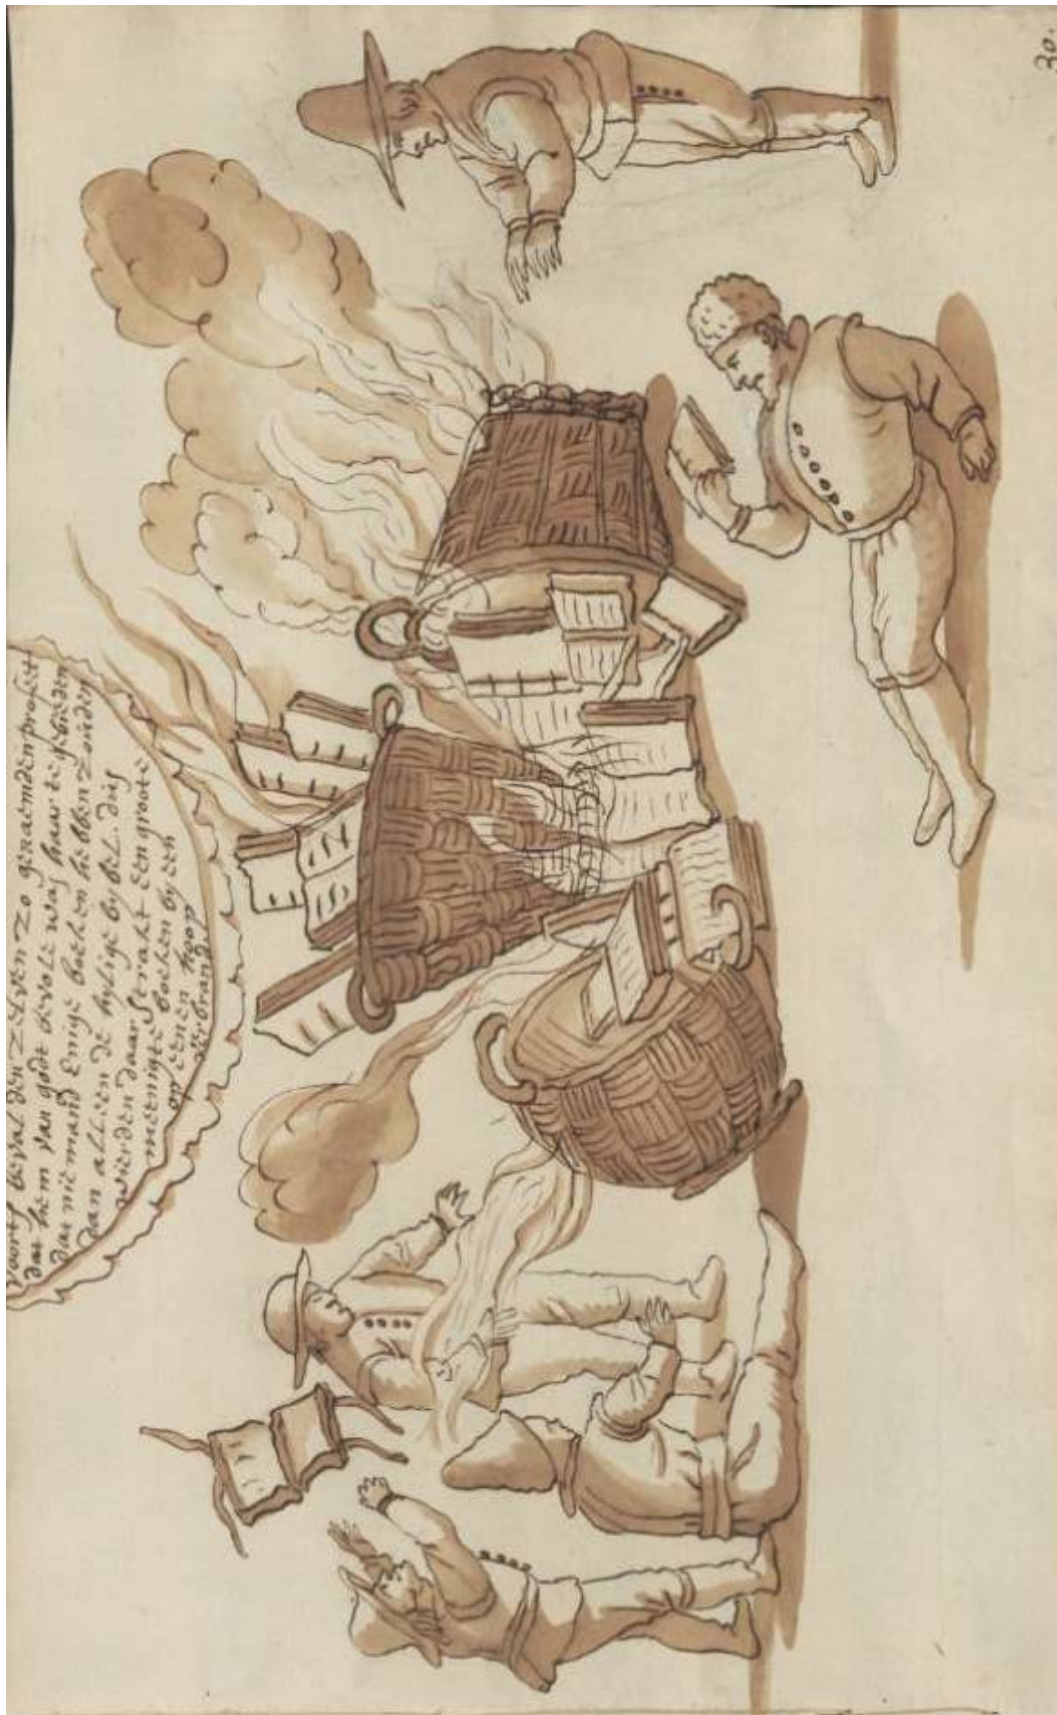 voorts beval den zelven zo genaemden profeet
dat hem van godt bevole was haar te gebieden
dat niemand Enige boeken hebben zouden
dan alleen de hylige bybel. dus
wierden daar Strakt een groote
meenigte boeken by een
op eenen hoop
verbrand
30.